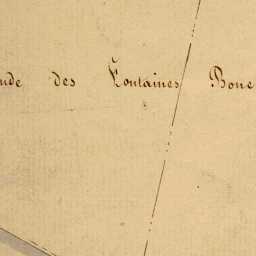 ude des Fontaines Bone